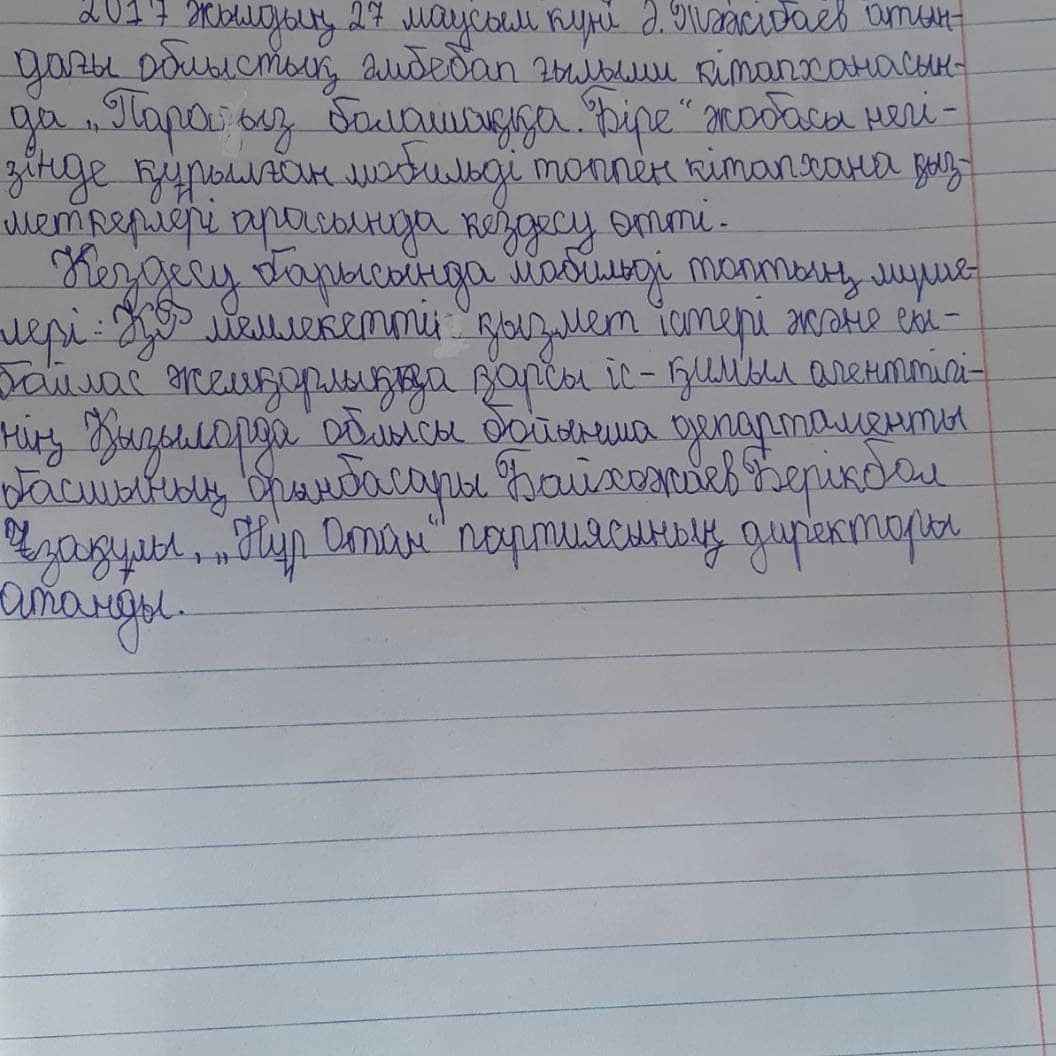 2017 жылдың 27 маусым күні Ә. Тәжібаев атын-
дағы облыстық әмбебап ғылыми кітапханасын-
да „Парасыз болашаққа. Бірге“ жобасы негі-
зінде құрылған мобильді топпен кітапхана қыз-
меткерлері арасында кездесу өтті.
Кездесу барысында мобильді топтың мүше-
лері: ҚР мемлекеттік қызмет істері және сы-
байлас жемқорлыққа қарсы іс-қимыл агенттігі-
нің Қызылорда облысы бойынша департаменты
басшының орынбасары Байхожаев Берікбол
Ұзақұлы, „Нұр Отан“ партиясының директоры
атанды.